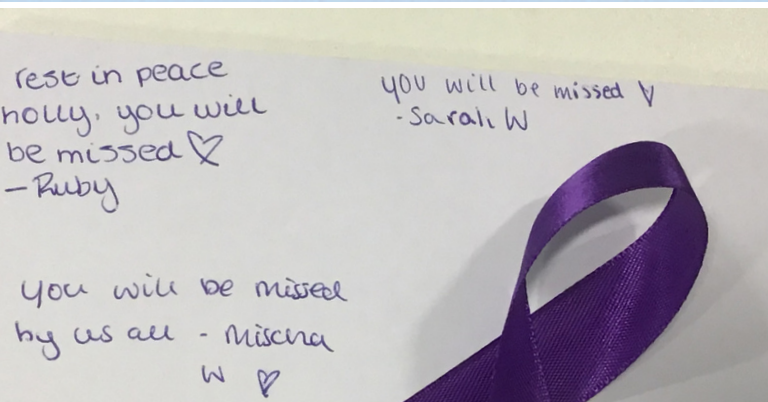 rest in peace
holly, you will
be missed ♡
- Ruby
you will be missed ♡
- Sarah W
you will be missed
by us all - Mischa
W ♡